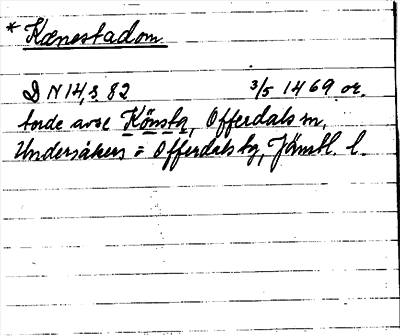 * Kænestadom
DN 14, s 82 3/5 1469 or.
torde avse Könsta, Offerdals sn,
Undersåkers o Offerdals tg, Jämtl. l.